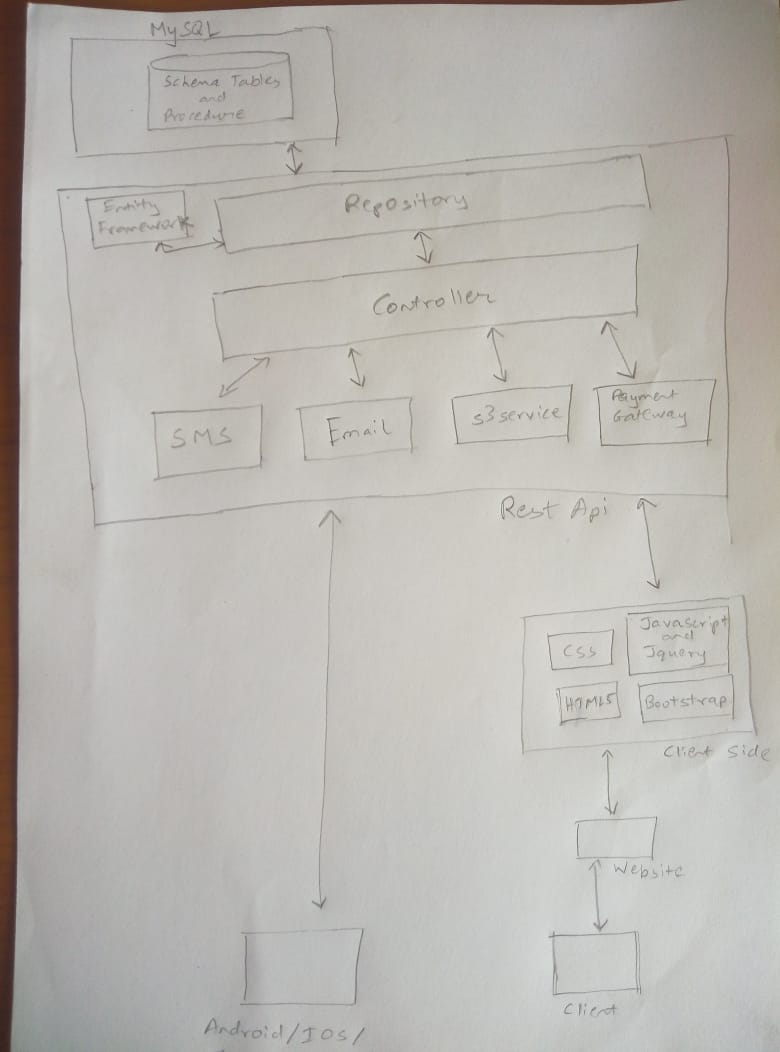 MySQL
Schema Tables
and
Procedure
Entity
Framework
Repository
Controller
SMS
Email
s3service
Payment
Gateway
Rest Api
CSS
Javascript
and
Jquery
HTML5
Bootstrap
Client Side
Website
Client
Android/IOS/